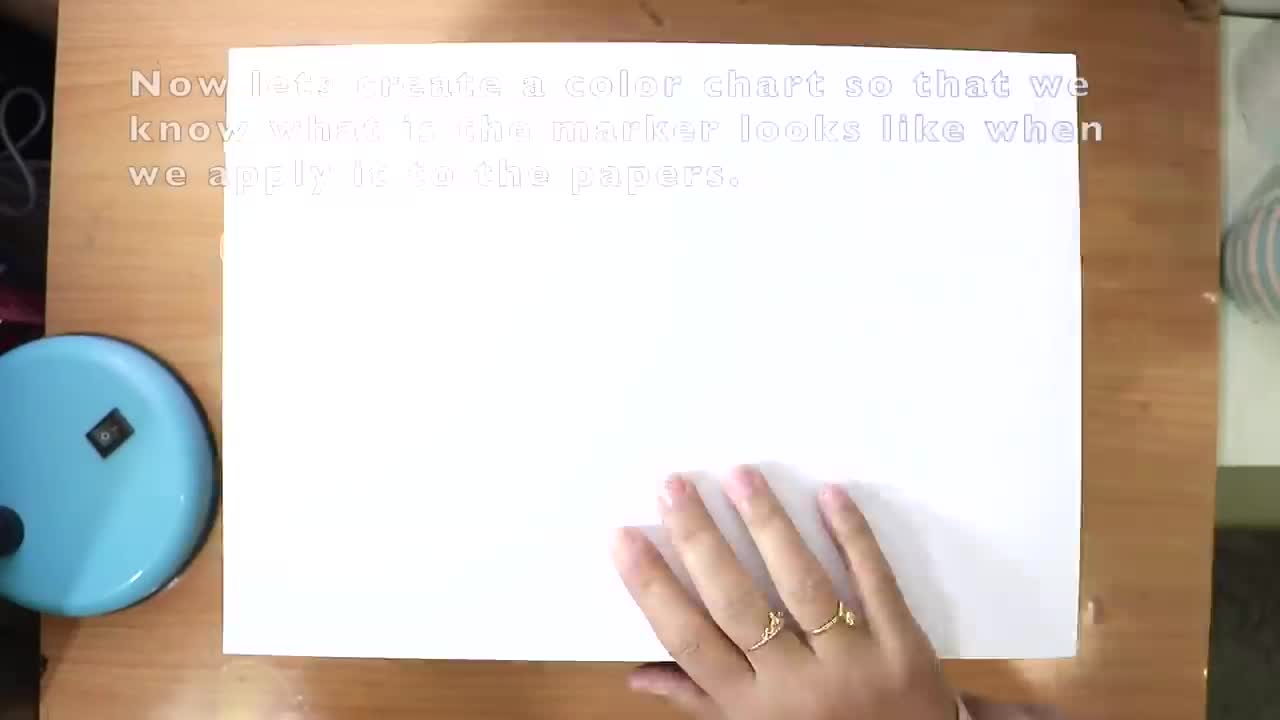 Now lets create a color chart so that we
know what is the marker looks like when
we apply it to the papers.